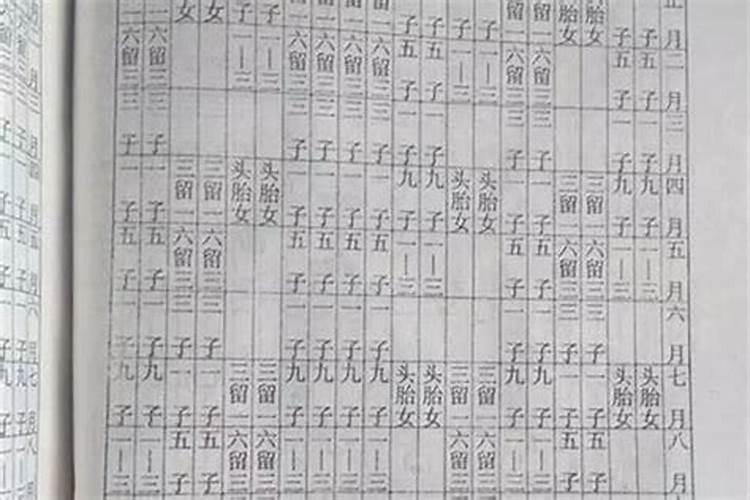 正月二月三月四月五月六月七月八月
子五子一子九子一|三头胎女
子五子一子九子一|三头胎女
胎女三留一六留三三子一子五子
胎女三留一六留三三子一子五子
留一六留三三子一子五子一子九子一|三
留一六留三三子一子五子一子九子一|三
子一|三头胎女三留一六留三
子一|三头胎女三留一六留三
子五子一子九子一|三头胎女
子五子一子九子一|三头胎女
一六留三三子一子五子一子九子一|三
一六留三三子一子五子一子九子一|三
一六留三三子一子五子一子九子一|三
一六留三三子一子五子一子九子一|三
子一|三头胎女三留一六留三
子一|三头胎女三留一六留三
女三留一六留三三子一子五子
女三留一六留三三子一子五子
一六留三三子一子五子一子九子一|三
一六留三三子一子五子一子九子一|三